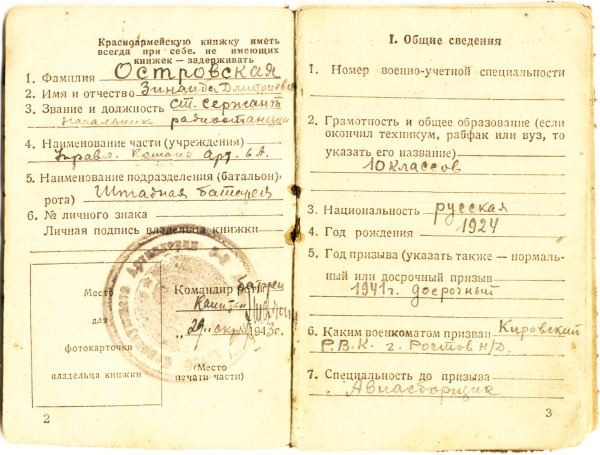 Красноармейскую книжку иметь
всегда при себе. не имеющих
книжек — задерживать
1. Фамилия Островская
2. Имя и отчество Зинаида Дмитриевна
3. Звание и должность Ст. сержант
начальник радиостанции
4. Наименование части (учреждения)
Управл. Команд Арт. 6 А.
5. Наименование подразделения (батальон,
рота) Штабная батарея
6. № личного знака
Личная подпись владельца книжки
Место
для
фотокарточки
владельца книжки
Командир роты батареи
Капитан
„29" окт 1943г.
(Место
печати части)
2
I. Общие сведения
1. Номер военно-учетной специальности
2. Грамотность и общее образование (если
окончил техникум, рабфак или вуз, то
указать его название)
10 классов
3. Национальность русская
4. Год рождения 1924
5. Год призыва (указать также — нормаль-
ный или досрочный призыв
1941г. досрочный
6. Каким военкоматом призван Кировский
Р.В.К. г. Ростов н/Д.
7. Специальность до призыва
Авиасборщик
3